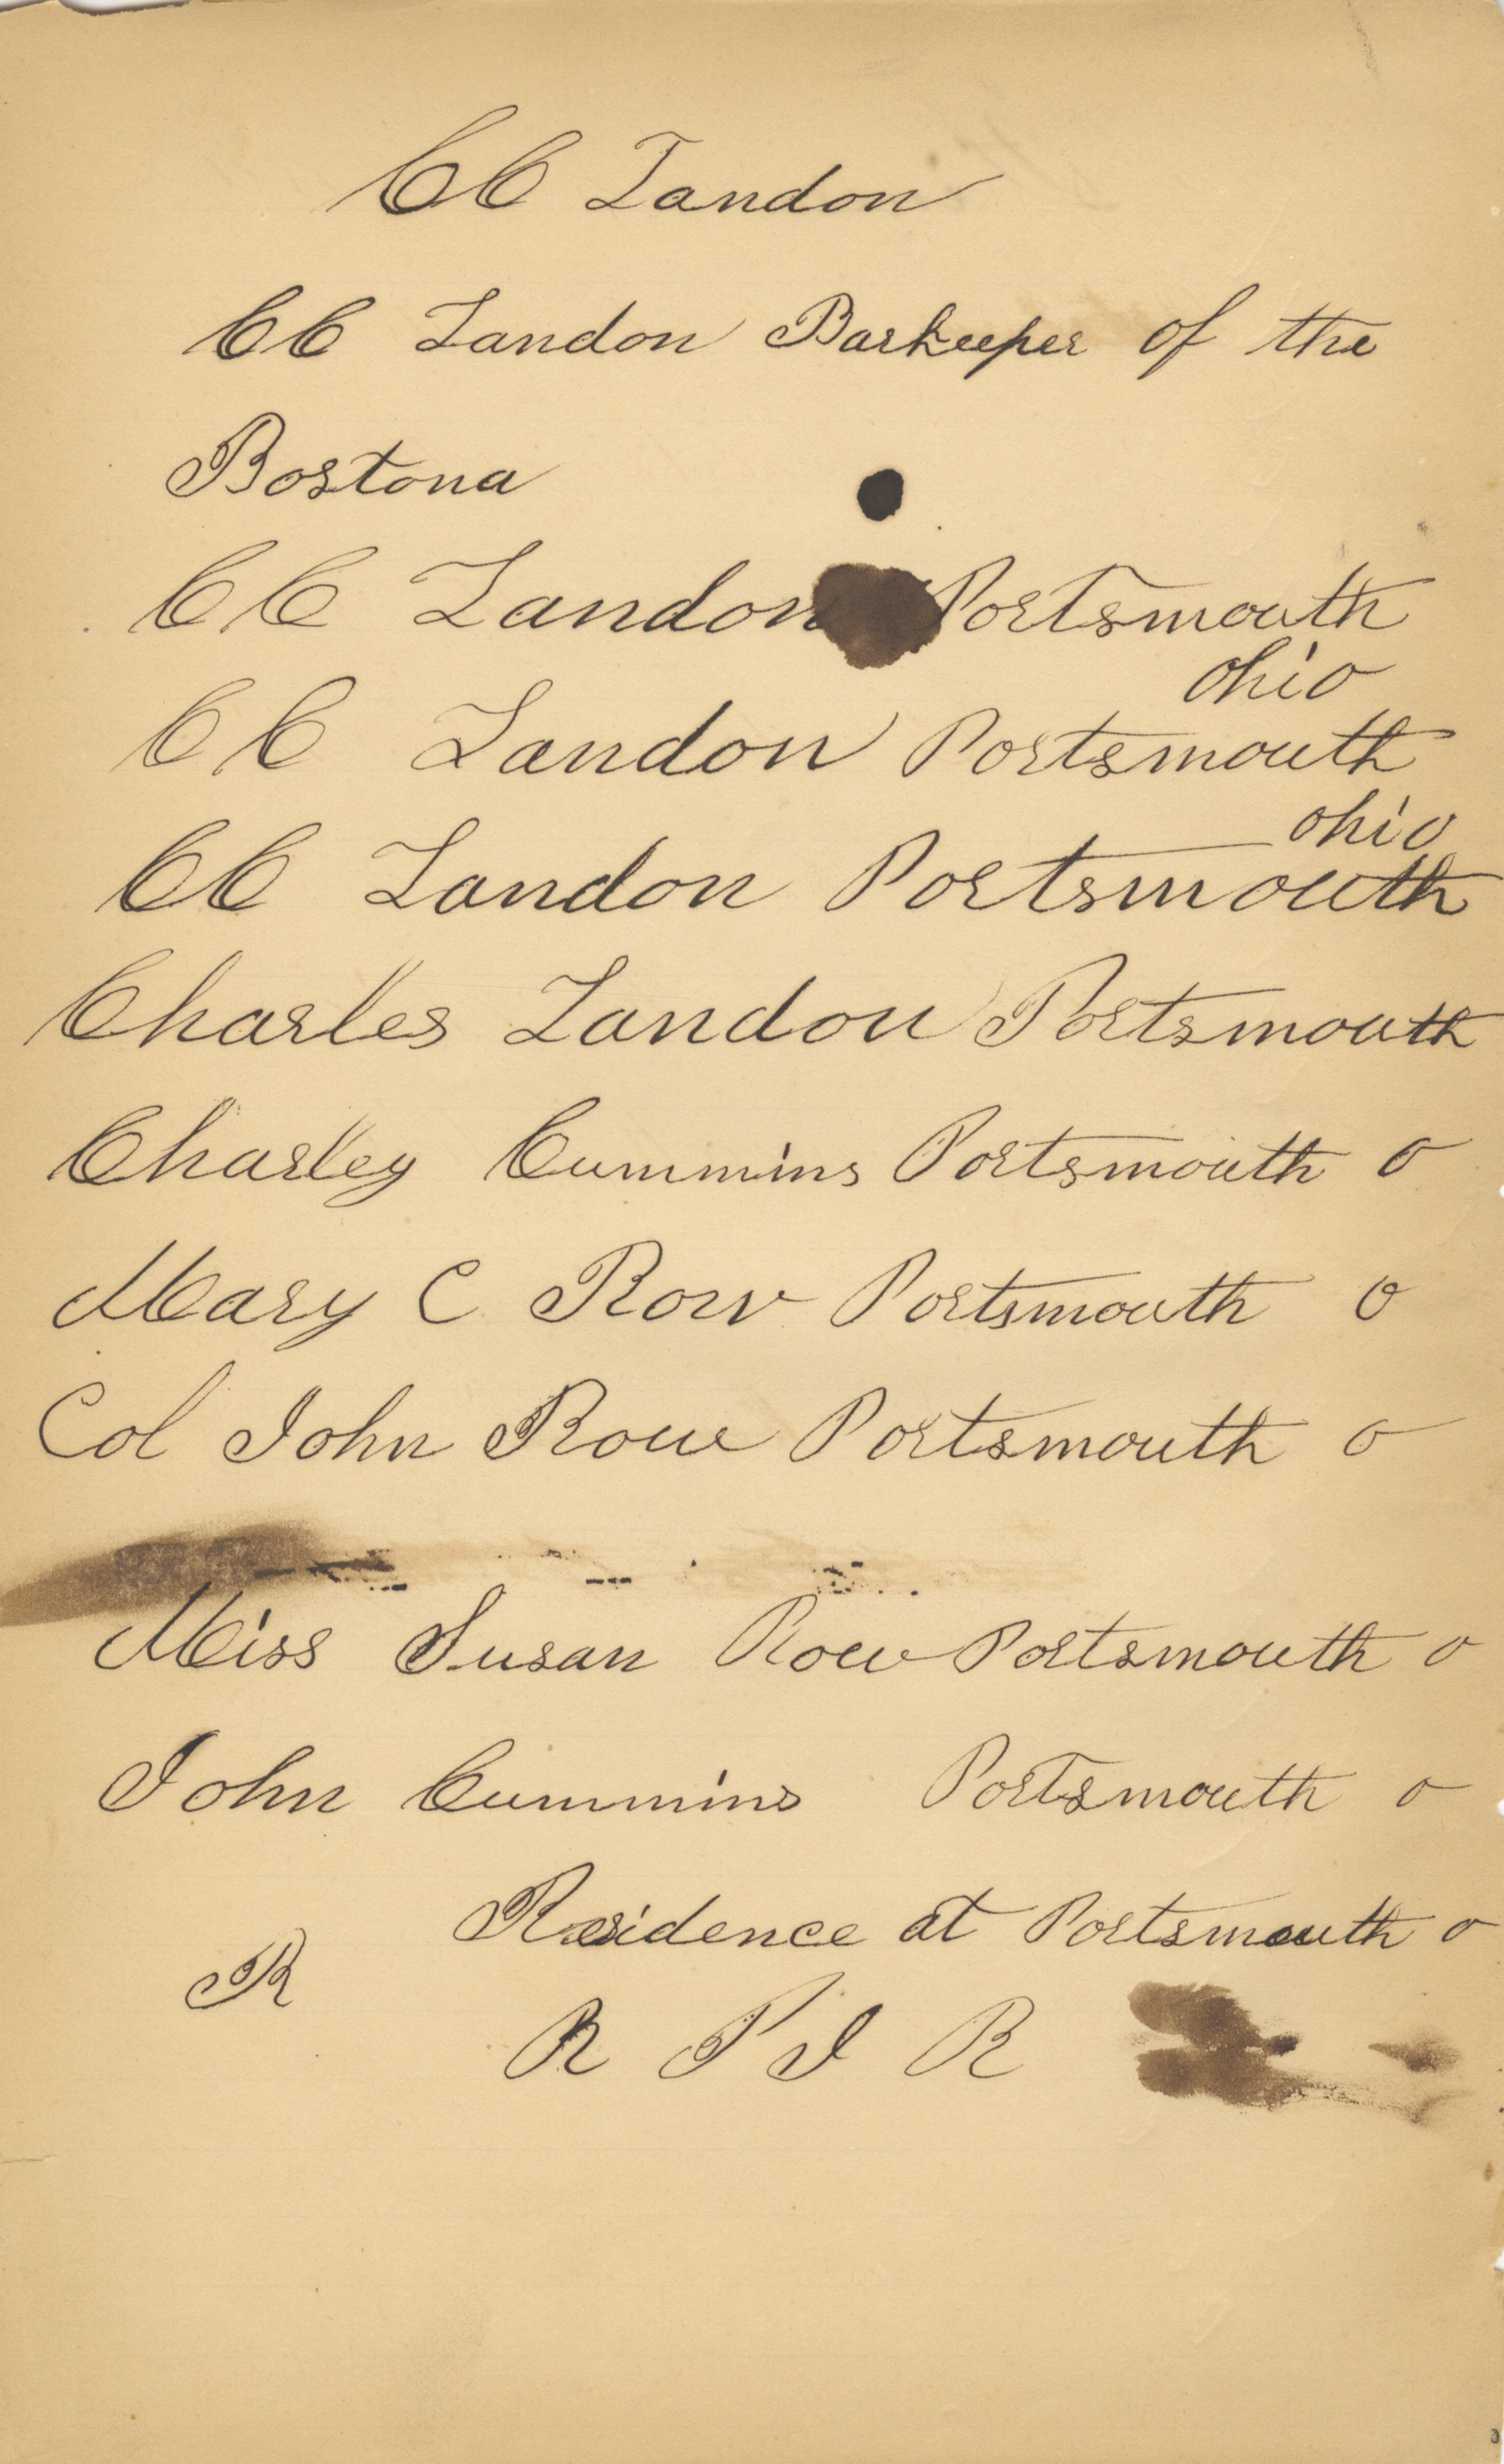 CC Landon
CC Landon Barkeeper of the
Bostona
CC Landon Portsmouth
ohio
CC Landon Portsmouth
ohio
CC Landon Portsmouth
Charles Landon Portsmouth
Charley Cummins Portsmouth O
Mary C Row Portsmouth O
Col John Row Portsmouth O
Miss Susan Row Portsmouth O
John Cummins Portsmouth O
Residence at Portsmouth O
R
R P J R